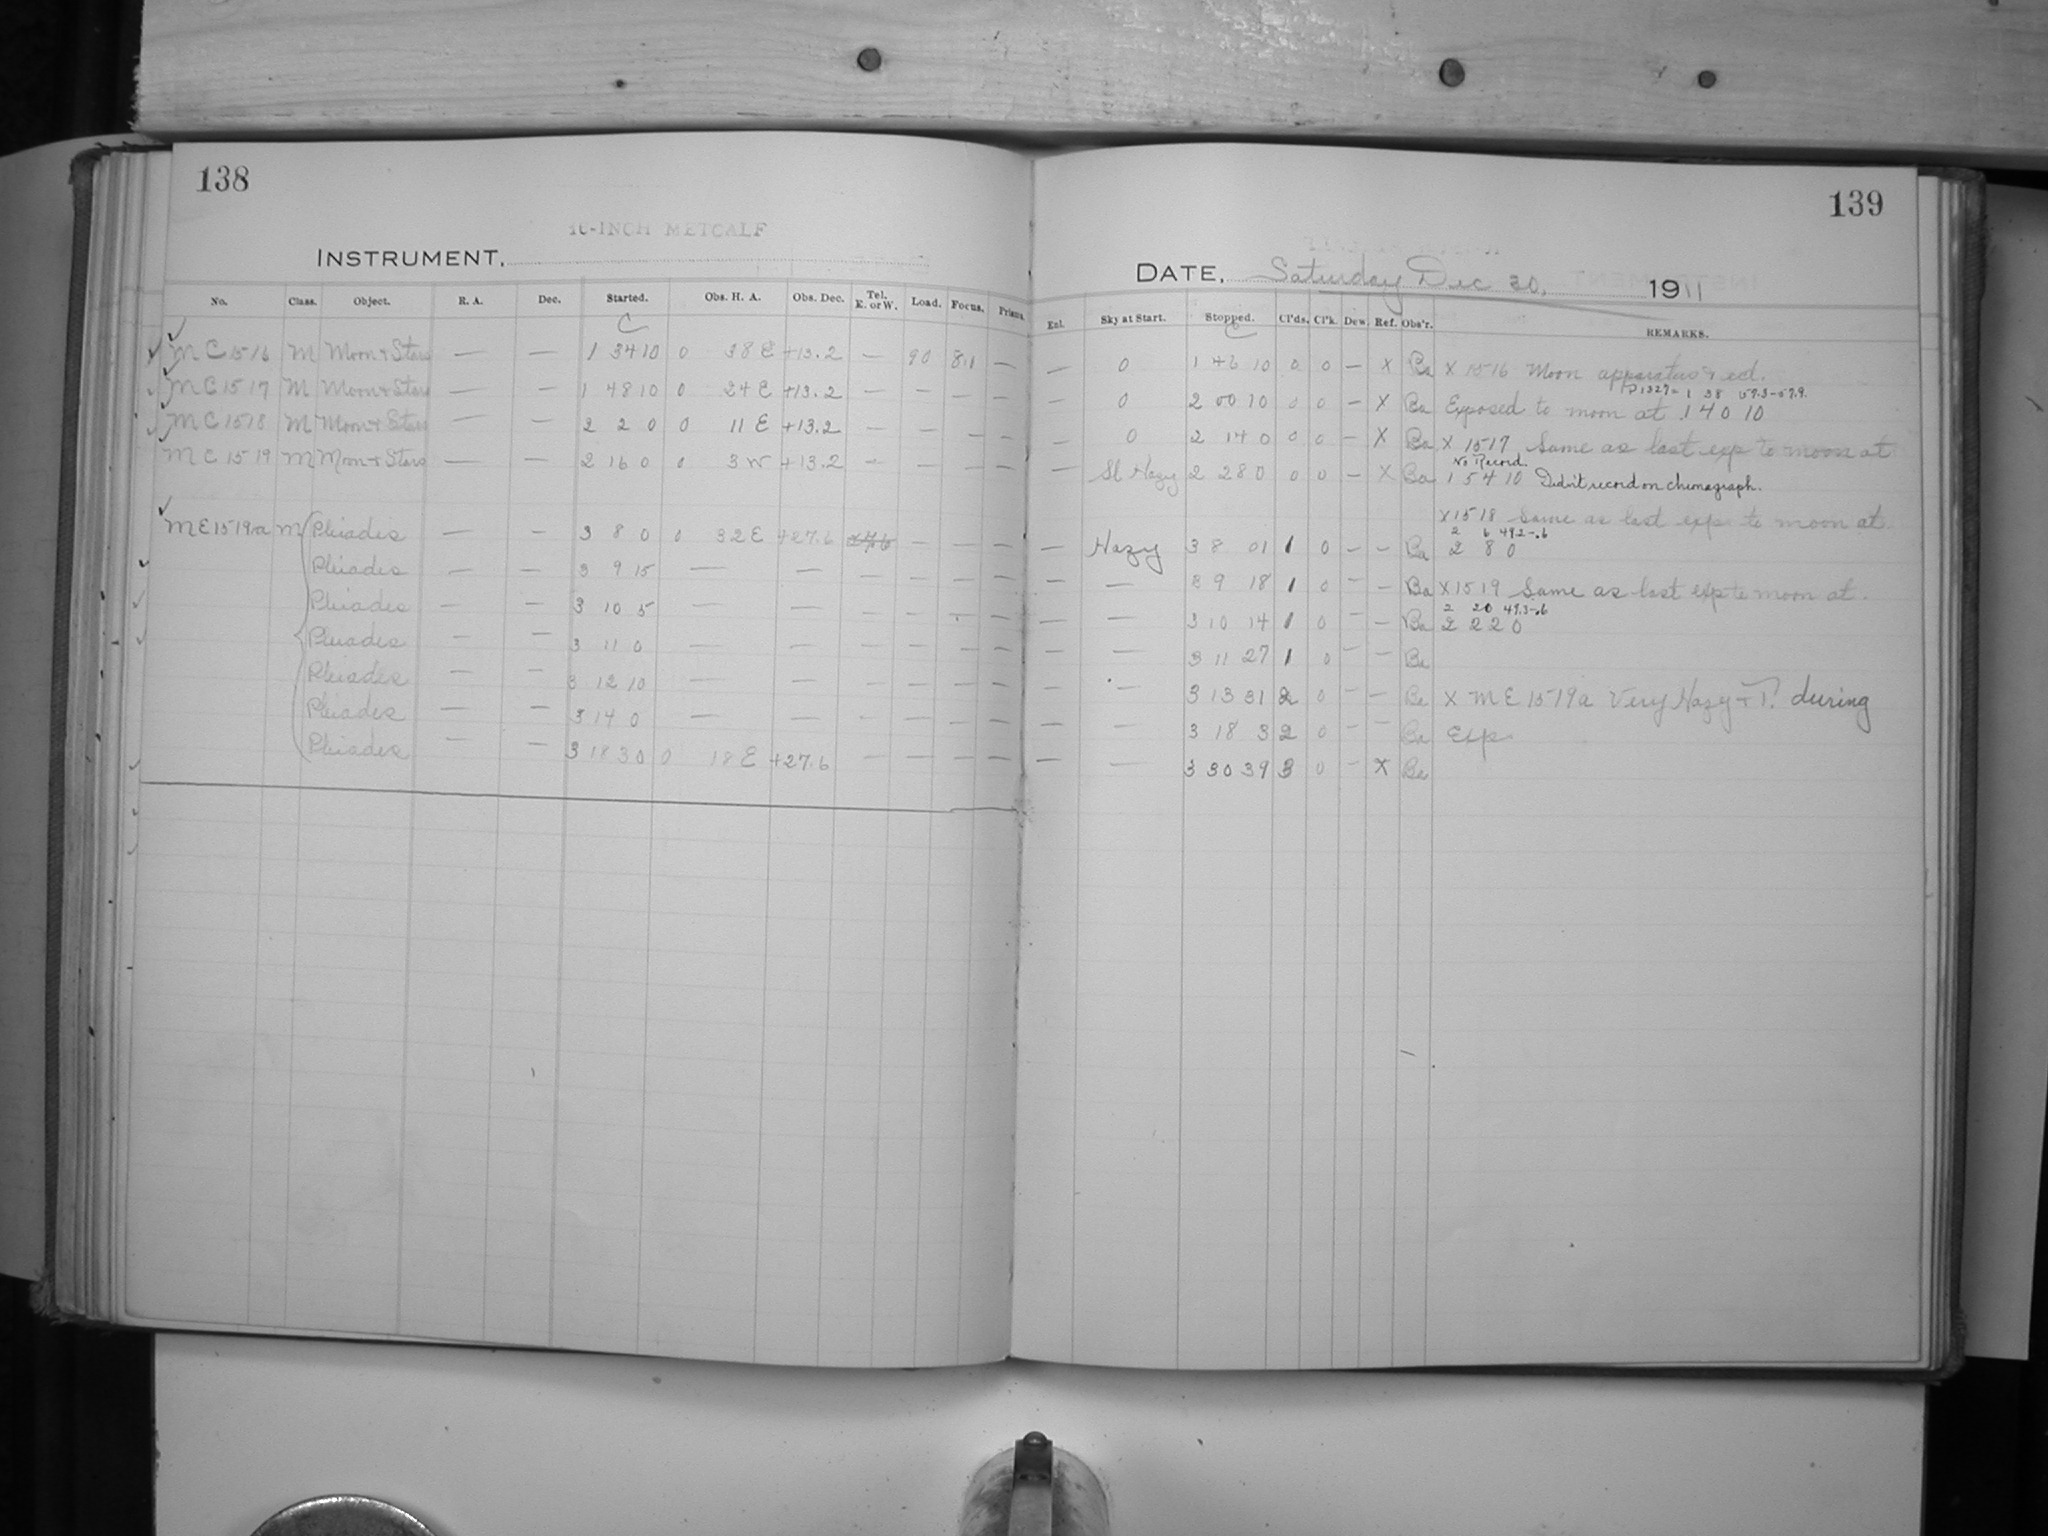 138
16-INCH METCALF
INSTRUMENT,
No. Class. Object. R. A. Dec. Started. Obs. H. A. Obs. Dec. Tel. E. or W. Load. Focus. Prisms.
C
MC 1516 M Moon + Stars — — 1 34 10 0 38 E +13.2 — 90 8.1 —
MC 1517 M Moon + Stars — — 1 48 10 0 24 E +13.2 — — — —
MC 1518 M Moon + Stars — — 2 2 0 0 11 E +13.2 — — — —
MC 1519 M Moon + Stars — — 2 16 0 0 3 W +13.2 — — — —
ME 1519a M Pleiades — — 3 8 0 0 32 E +27.6 — — —
Pleiades — — 3 9 15 — — — — — —
Pleiades — — 3 10 5 — — — — — —
Pleiades — — 3 11 0 — — — — — —
Pleiades — — 3 12 10 — — — — — —
Pleiades — — 3 14 0 — — — — — —
Pleiades — — 3 18 30 0 18 E +27.6 — — — —
139
DATE, Saturday Dec 30, 1911
Enl. Sky at Start. Stopped. Cl'ds. Cl'k. Dew. Ref. Obs'r. REMARKS.
C
— 0 1 46 10 0 0 — X Ba X 1516 Moon apparatus
1 38 57.3-57.9
— 0 2 00 10 0 0 — X Ba Exposed to moon at 1 40 10
— 0 2 14 0 0 0 — X Ba X 1517 Same as last exp to moon at
No Record.
— Sl Hazy 2 28 0 0 0 — X Ba 1 54 10 Didn't record on chronograph.
X 1518 Same as last exp to moon at
2 6 49.2-.6
— Hazy 3 8 01 1 0 — — Ba 2 8 0
— — 3 9 18 1 0 — — Ba X 1519 Same as last exp to moon at.
2 20 49.3-.6
— — 3 10 14 1 0 — — Ba 2 22 0
— — 3 11 27 1 0 — — Ba
— — 3 13 31 2 0 — — Ba X ME 1519a Very Hazy + T. during
— — 3 18 3 2 0 — — Ba Exp.
— — 3 30 39 3 0 — X Ba